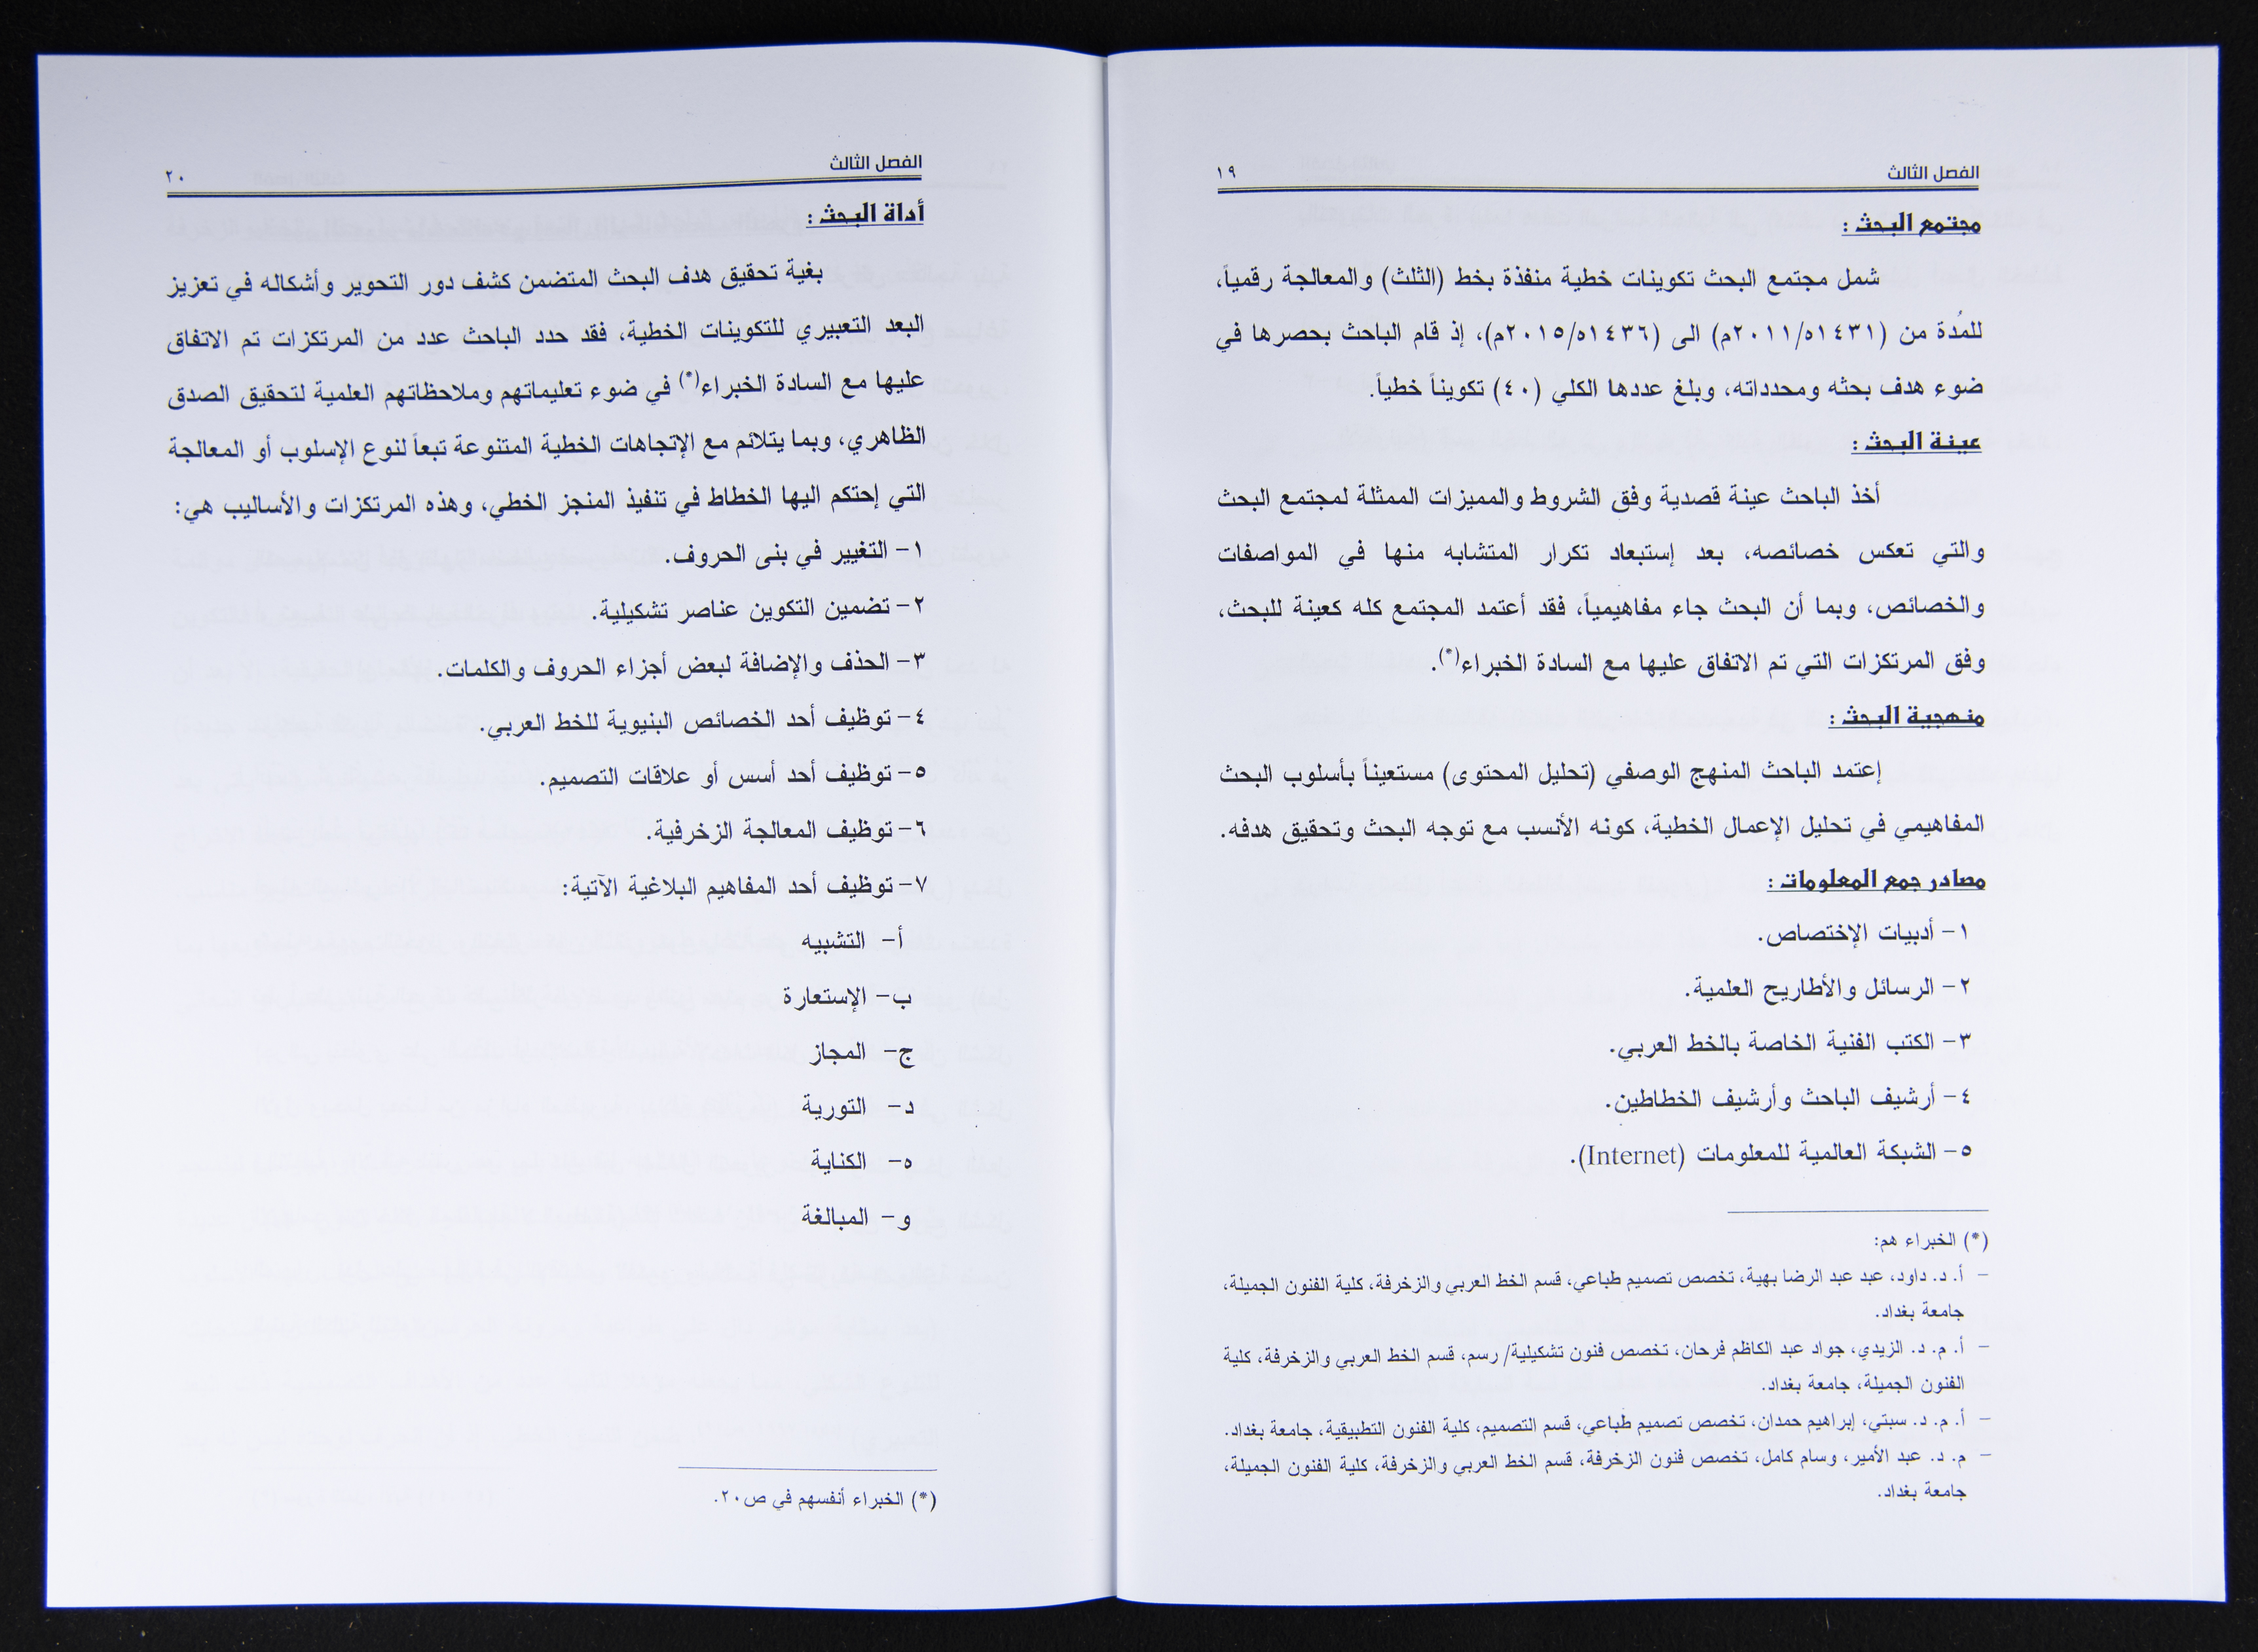 الفصل الثالث ١٩
مجتمع البحث :
شمل مجتمع البحث تكوينات خطية منفذة بخط (الثلث) والمعالجة رقمياً،
للمُدة من (١٤٣١ه/٢٠١١م) الى (١٤٣٦ه/٢٠١٥م)، إذ قام الباحث بحصرها في
ضوء هدف بحثه ومحدداته، وبلغ عددها الكلي (٤٠) تكويناً خطياً.
عينة البحث :
أخذ الباحث عينة قصدية وفق الشروط والمميزات الممثلة لمجتمع البحث
والتي تعكس خصائصه، بعد إستبعاد تكرار المتشابه منها في المواصفات
والخصائص، وبما أن البحث جاء مفاهيمياً، فقد أعتمد المجتمع كله كعينة للبحث،
وفق المرتكزات التي تم الاتفاق عليها مع السادة الخبراء(*).
منهجية البحث :
إعتمد الباحث المنهج الوصفي (تحليل المحتوى) مستعيناً بأسلوب البحث
المفاهيمي في تحليل الإعمال الخطية، كونه الأنسب مع توجه البحث وتحقيق هدفه.
مصادر جمع المعلومات :
١- أدبيات الإختصاص.
٢- الرسائل والأطاريح العلمية.
٣- الكتب الفنية الخاصة بالخط العربي.
٤- أرشيف الباحث وأرشيف الخطاطين.
٥- الشبكة العالمية للمعلومات (Internet).
(*) الخبراء هم:
- أ. د. داود، عبد عبد الرضا بهية، تخصص تصميم طباعي، قسم الخط العربي والزخرفة، كلية الفنون الجميلة،
جامعة بغداد.
- أ. م. د. الزيدي، جواد عبد الكاظم فرحان، تخصص فنون تشكيلية/ رسم، قسم الخط العربي والزخرفة، كلية
الفنون الجميلة، جامعة بغداد.
- أ. م. د. سبتي، إبراهيم حمدان، تخصص تصميم طباعي، قسم التصميم، كلية الفنون التطبيقية، جامعة بغداد.
- م. د. عبد الأمير، وسام كامل، تخصص فنون الزخرفة، قسم الخط العربي والزخرفة، كلية الفنون الجميلة،
جامعة بغداد.
الفصل الثالث ٢٠
أداة البحث :
بغية تحقيق هدف البحث المتضمن كشف دور التحوير وأشكاله في تعزيز
البعد التعبيري للتكوينات الخطية، فقد حدد الباحث عدد من المرتكزات تم الاتفاق
عليها مع السادة الخبراء(*) في ضوء تعليماتهم وملاحظاتهم العلمية لتحقيق الصدق
الظاهري، وبما يتلائم مع الإتجاهات الخطية المتنوعة تبعاً لنوع الإسلوب أو المعالجة
التي إحتكم اليها الخطاط في تنفيذ المنجز الخطي، وهذه المرتكزات والأساليب هي:
١- التغيير في بنى الحروف.
٢- تضمين التكوين عناصر تشكيلية.
٣- الحذف والإضافة لبعض أجزاء الحروف والكلمات.
٤- توظيف أحد الخصائص البنيوية للخط العربي.
٥- توظيف أحد أسس أو علاقات التصميم.
٦- توظيف المعالجة الزخرفية.
٧- توظيف أحد المفاهيم البلاغية الآتية:
أ- التشبيه
ب- الإستعارة
ج- المجاز
د- التورية
ه- الكناية
و- المبالغة
(*) الخبراء أنفسهم في ص٢٠.